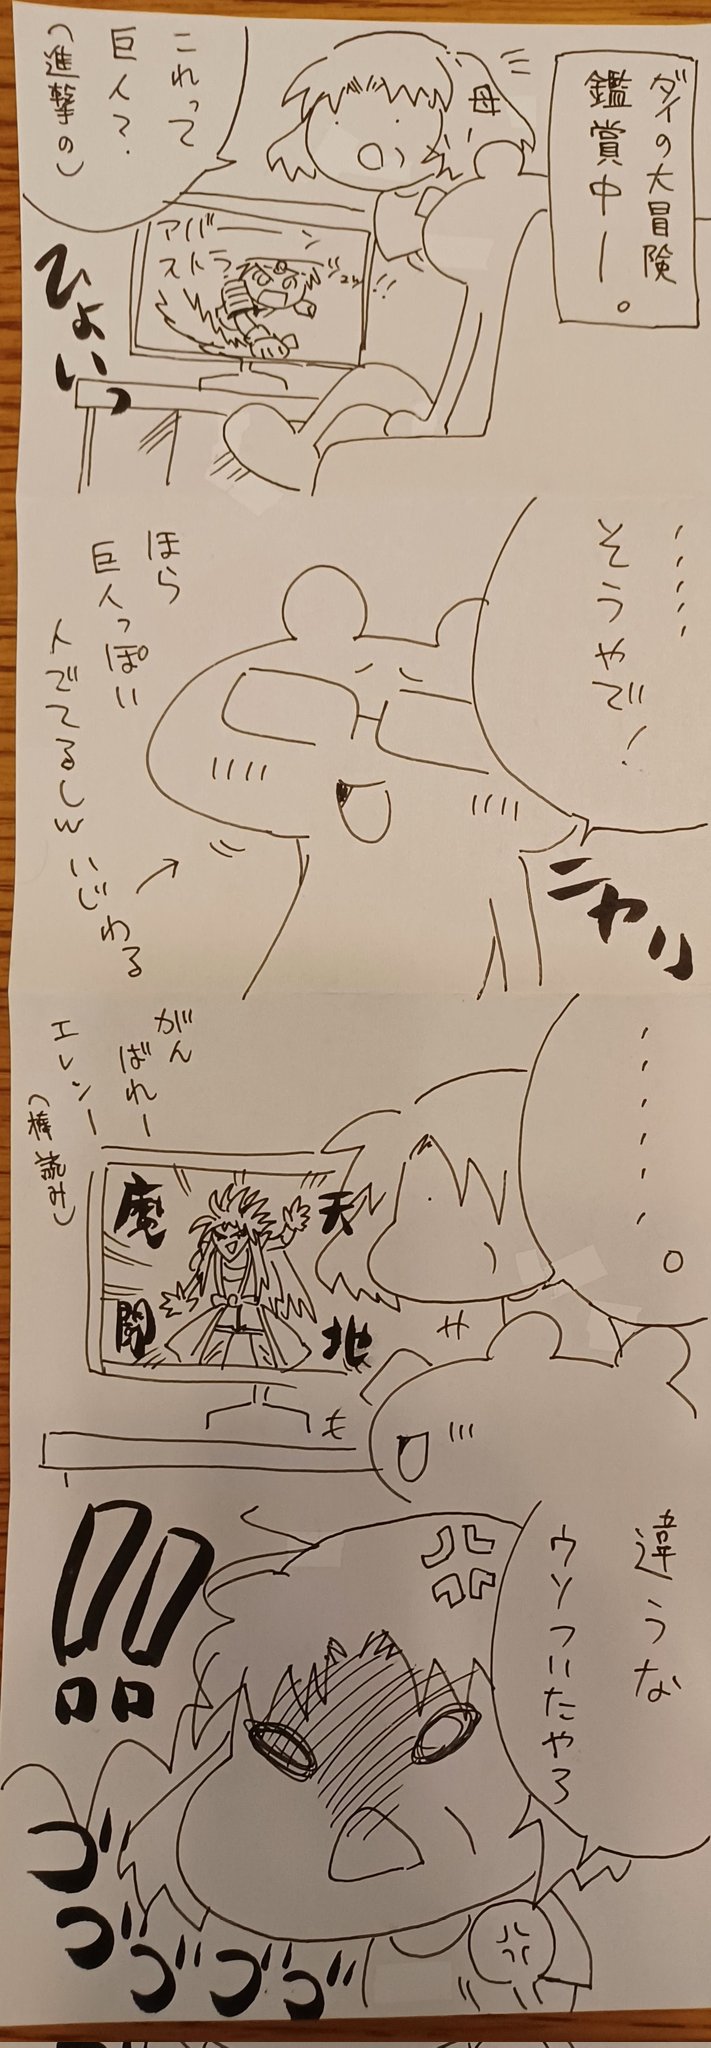 ダイの大冒険
鑑賞中ー。
母
これって
巨人？
（進撃の）
アバン
ストラッシュ!!
ひょいっ
・・・・・
そうやで！
ニヤリ
ほら
巨人っぽい
人でてるしw
いじわる
・・・・・・。
がん
ばれー
エレンー
（棒読み）
天
地
魔
闘
も
違うな
ウソついたやろ
!!
ゴゴゴゴゴ